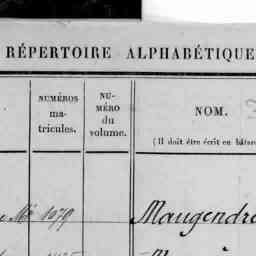 RÉPERTOIRE ALPHABÉTIQUE
NUMÉROS
ma-
tricules.
NU-
MÉRO
du
volume.
NOM.
(Il doit être écrit en bâtar
1079
Maugendre